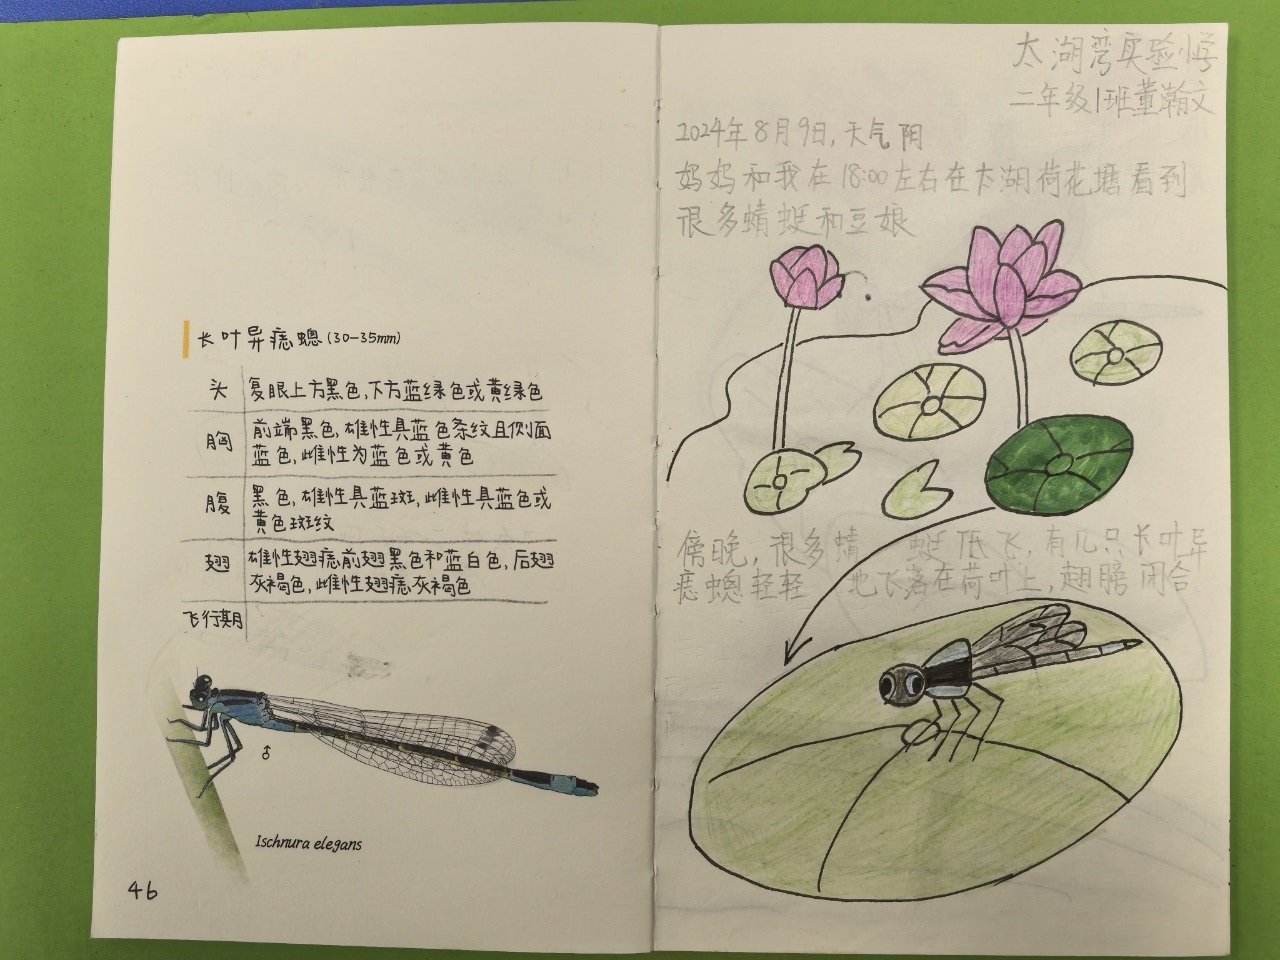 长叶异痣蟌(30-35mm)
头 复眼上方黑色,下方蓝绿色或黄绿色
胸 前端黑色,雄性具蓝色条纹且侧面
蓝色,雌性为蓝色或黄色
腹 黑色,雄性具蓝斑,雌性具蓝色或
黄色斑纹
翅 雄性翅痣前翅黑色和蓝白色,后翅
灰褐色,雌性翅痣灰褐色
飞行期
♂
Ischnura elegans
46
太湖湾实验小学
二年级1班董瀚文
2024年8月9日,天气阴
妈妈和我在18:00左右在太湖荷花塘看到
很多蜻蜓和豆娘
傍晚,很多蜻蜓低飞,有几只长叶异
痣蟌轻轻地飞落在荷叶上,翅膀闭合